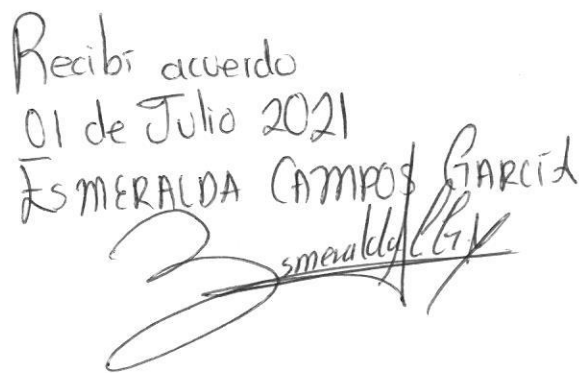 Recibí acuerdo
01 de Julio 2021
ESMERALDA CAMPOS GARCÍA
Esmeralda C G